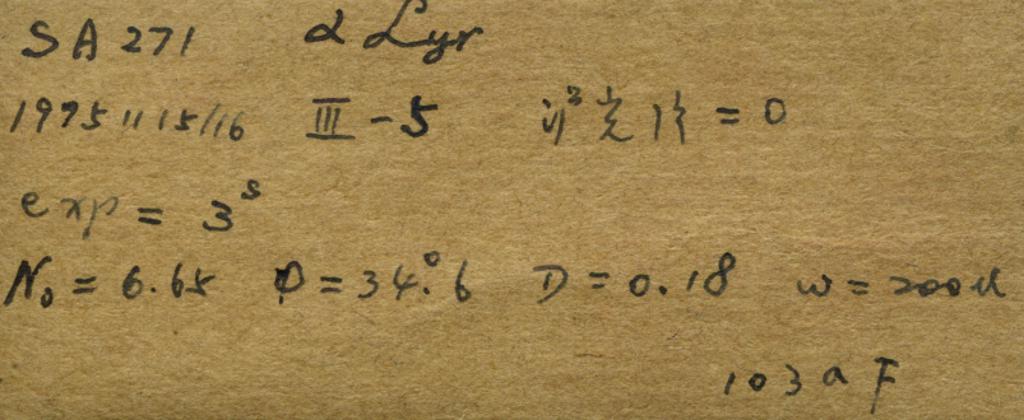 SA 271 α Lyr
1975 11 15/16 III-5 = 0
exp = 3ˢ
N₀ = 6.65 Φ = 34.°6 D = 0.18 w = 200μ
103aF